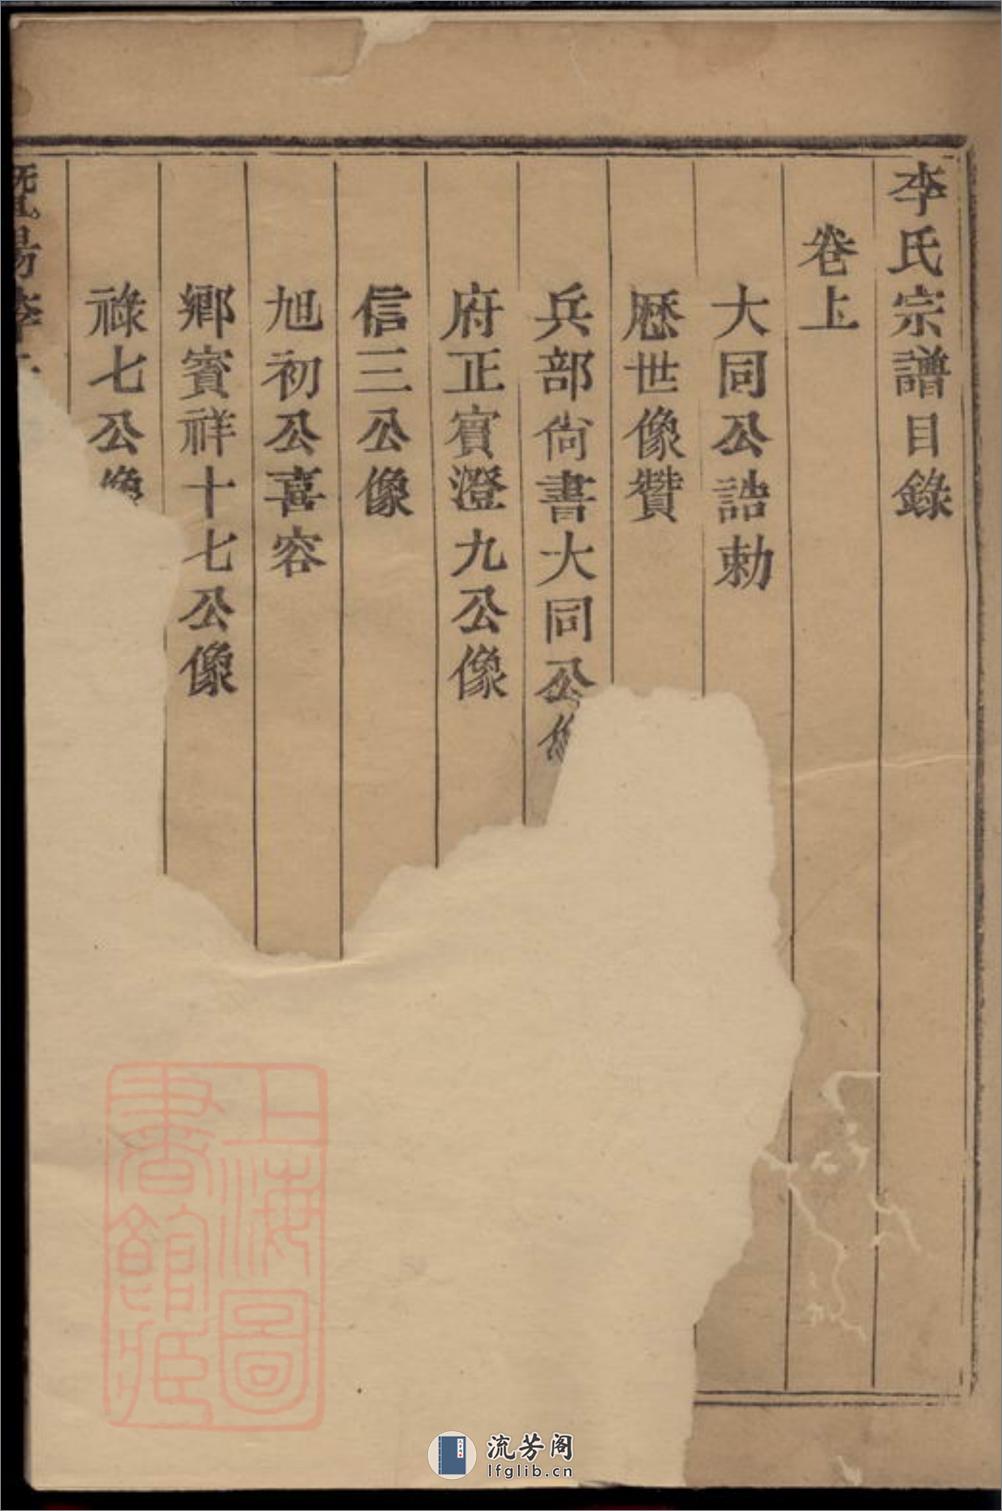 李氏宗譜目錄
卷上
大同公誥勅
歷世像贊
兵部尙書大同公像
府正賓澄九公像
信三公像
旭初公喜容
鄉賓祥十七公像
祿七公像
暨陽李
上海圖
書館藏
流芳阁
lfglib.cn